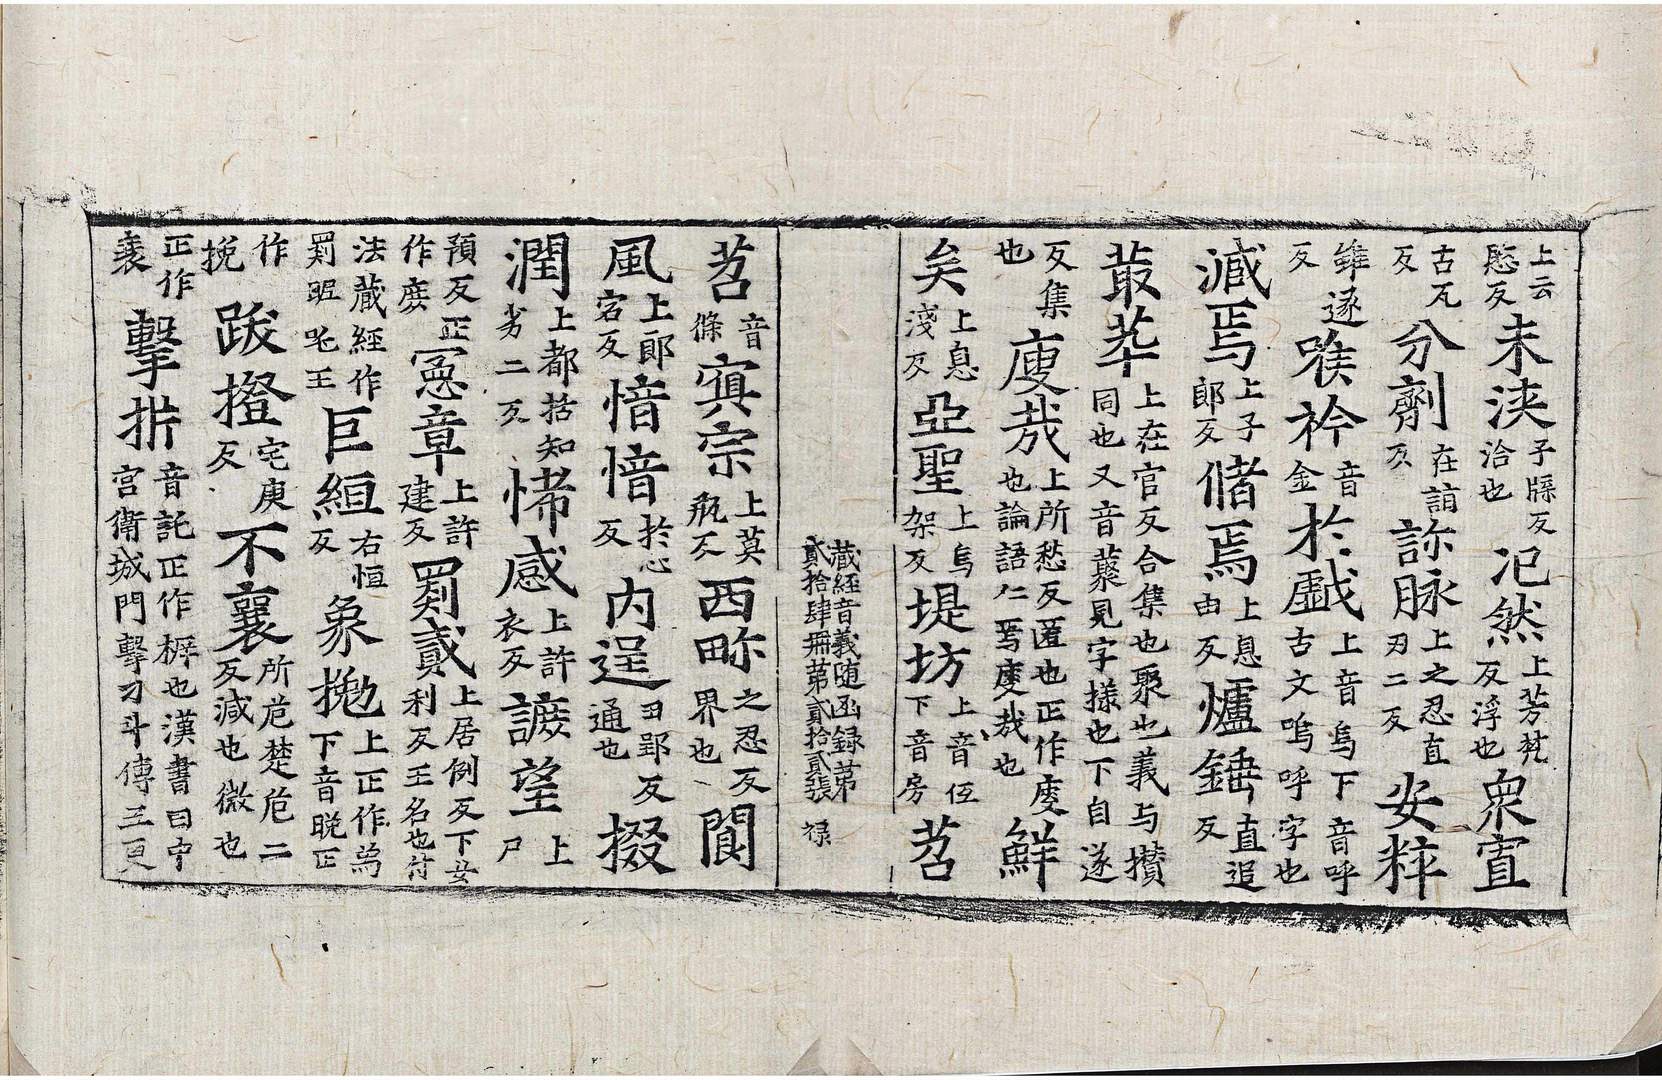 上云愍反未浹子牒反洽也汜然上芳梵反浮也衆𡧳
古瓦反分劑在詣反診脉上之忍直刃二反安粹
雖遂反喉衿音金於戯上音烏下音呼古文嗚呼字也
減焉上子郎反儲焉上息由反爐錘直追反
叢萃上在官反合集也聚也義与攢同也又音藂見字㨾也下自遂
反集也廋哉上所愁反匿也正作廋也論語仁焉廋哉也鮮
矣上息淺反亞聖上烏架反堤坊上音伍下音房苕
藏經音義随函録第貳拾肆冊第貳拾貳張 禄
音條寘宗上莫瓶反西畛之忍反界也閬
風上郎宕反愔愔於心反内逞丑郢反通也掇
潤上都括知劣二反悕感上許衣反謼望上尸
預反正作庶冤章上許建反罽貳上居例反下女利反王名也竹
法藏經作罽昵昵王巨縆右恒反象拋上正作爲下音晚正
作挽跋撜宅庚反不襄所危楚危二反減也微也
正作衰擊㭊音託正作㭊也漢書曰中宫衛城門擊刁斗傳五更